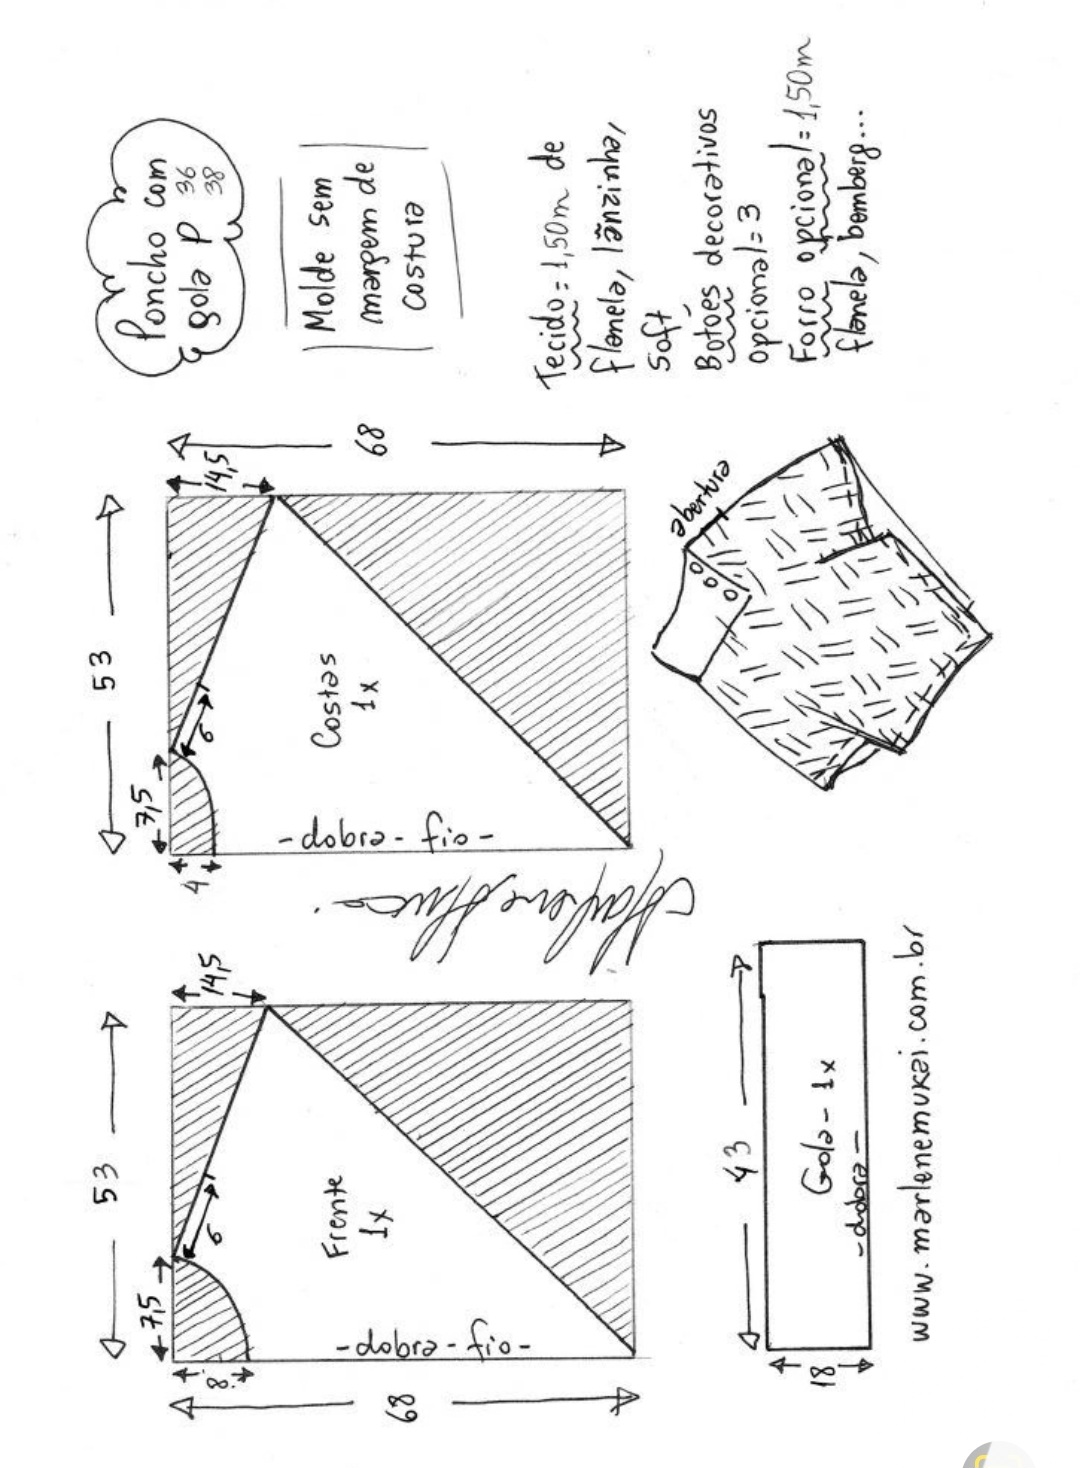 Poncho com
gola P 36
38
Molde sem
margem de
costura
Tecido = 1,50m de
flanela, lãnzinha,
soft
Botões decorativos
opcional = 3
Forro opcional = 1,50m
flanela, bemberg...
53
7,5
6
14,5
8
68
Frente
1x
-dobra- fio-
53
7,5
6
14,5
4
68
Costas
1x
-dobra- fio-
Marlene Mukai
abertura
43
Gola - 1x
-dobra-
18
www.marlenemukai.com.br